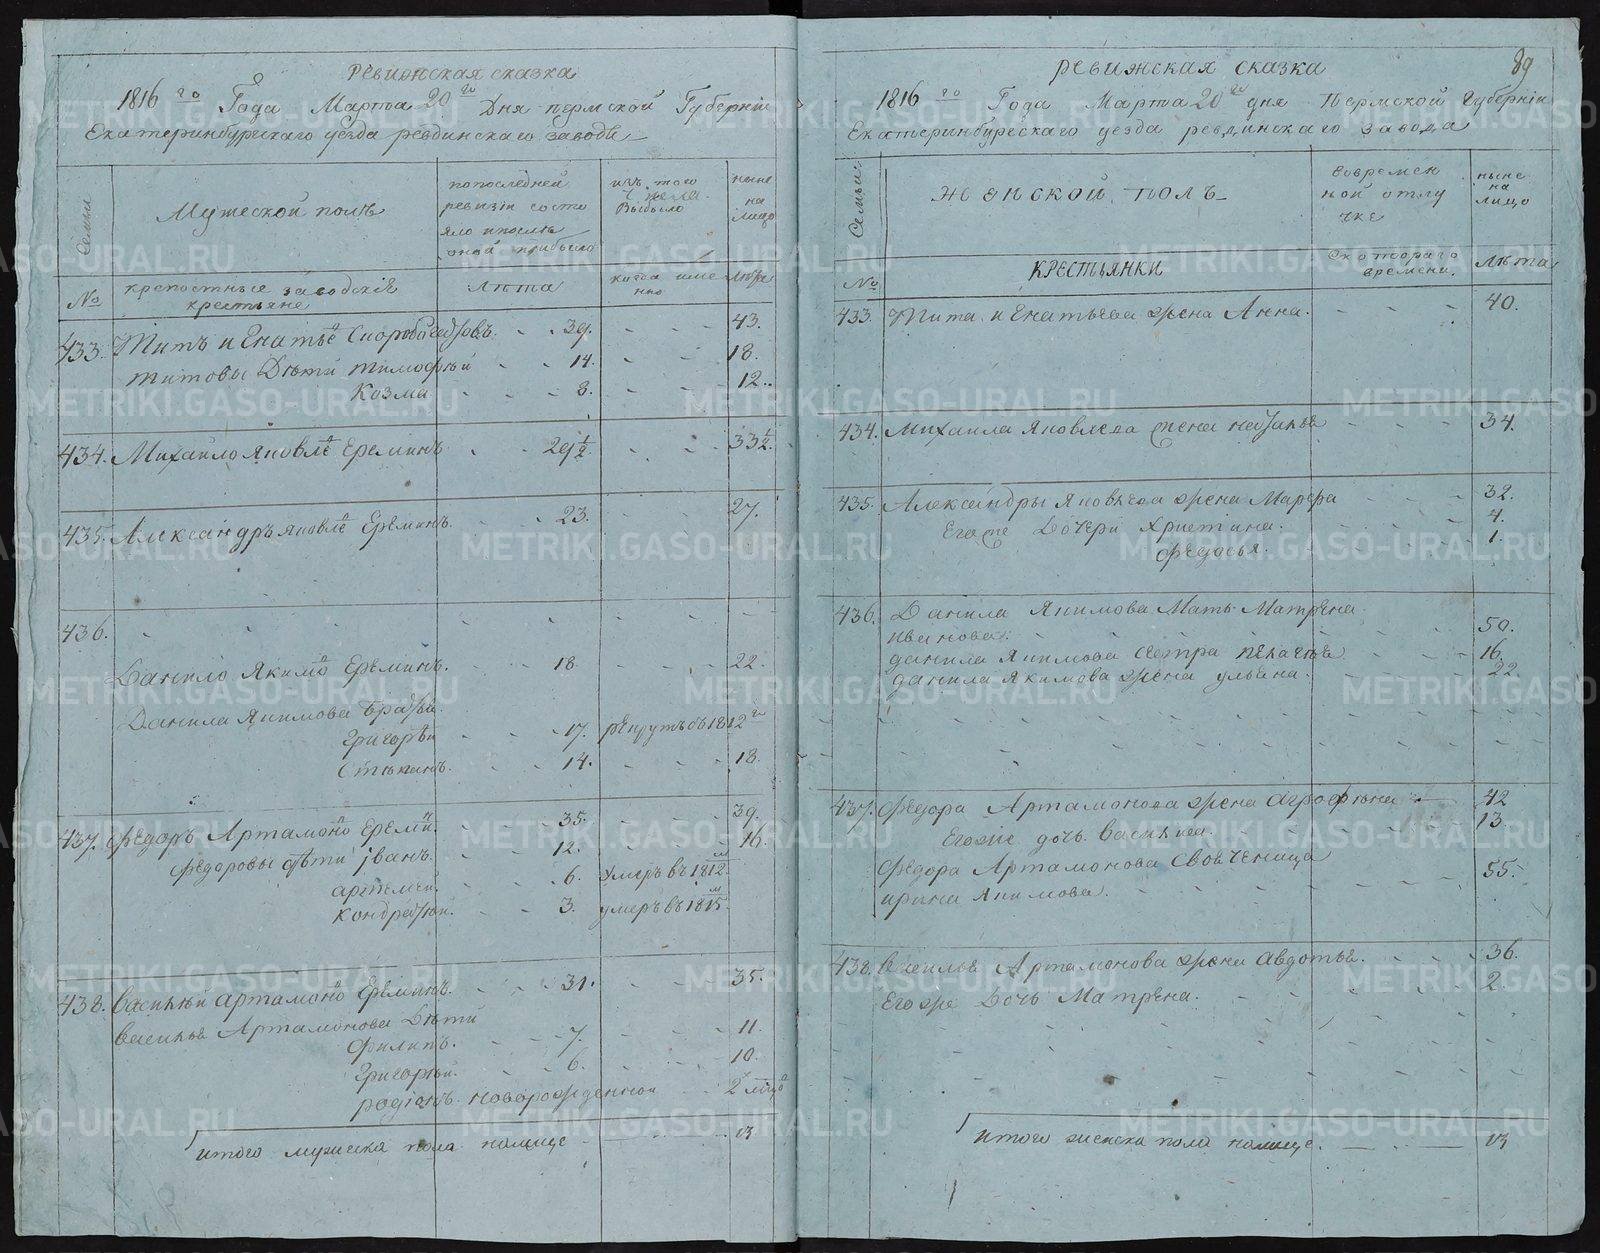 Ревижская сказка
1816 го Года Марта 20 го Дня Пермской Губернiи
Екатеринбурскаго уезда ревдинскаго завода
Семьи
Мужеской полъ
попоследней ревизiи состояло ипосле оной прибыло
изъ того числа Выбыло
ныне на лицо
№
крепостные заводскiе крестьяне
лѣта
когда имено
лѣта
433. Титъ Игнатьевъ Скоробогатовъ - - 39. - - - 43.
титовы Дѣти тимофѣй - - 14. - - - 18.
Козма - - 8. - - - 12.
434. Михаило Яковле Ереминъ - - 29½. - - - 33½.
435. Александръ яковле Ереминъ. - - 23. - - - 27.
436.
Данило Якимо Ереминъ. - - 18. - - - 22.
Данила якимова братья
Григорѣй - - 17. рекрутъ въ 1812 го
Степанъ. - - 14. - - - 18.
437. Федоръ Артамоно Ереми. - - 35. - - - 39.
Федоровы дѣти iванъ. - - 12. - - - 16.
артемей. - - 6. умеръ въ 1812 м
Кондратей. - - 3. умеръ въ 1815 м
438. Василий артамоно Ереминъ. - - 31. - - - 35.
Василья Артамонова Дѣти
Филипъ. - - 7. - - - 11.
Григорей. - - 6. - - - 10.
родiонъ новорожденной - - 2
итого мужеска пола налице - 13
89
ревижская сказка
1816 го Года Марта 20 го дня Пермской Губернiи
Екатеринбурескаго уезда ревдинскаго завода
Семьи
женской полъ
вовременной отлучке
ныне на лицо
№
Крестьянки
Скотораго времени.
лѣта
433. Тита Игнатьева жена Анна. - - - 40.
434. Михаила Яковлева жена наталья - - - 34.
435. Александры Яковлева жена Марфа - - - 32.
Егоже Дочери Христина. - - - 4.
федосья. - - - 1.
436. Данила Якимова Мать Матрена
иванова. - - - 50.
данила Якимова сестра пелагея - - - 16.
данила Якимова жена ульяна. - - - 22
437. Федора Артамонова жена агрофена - - - 42
Егоже дочь василиса. - - - 13.
Федора Артамонова Своеченица
ирина Якимова. - - - 55.
438. Василья Артамонова жена Авдотья. - - - 36.
Егоже Дочь Матрена. - - - 2.
итого женска пола налице. - 13
METRIKI.GASO-URAL.RU